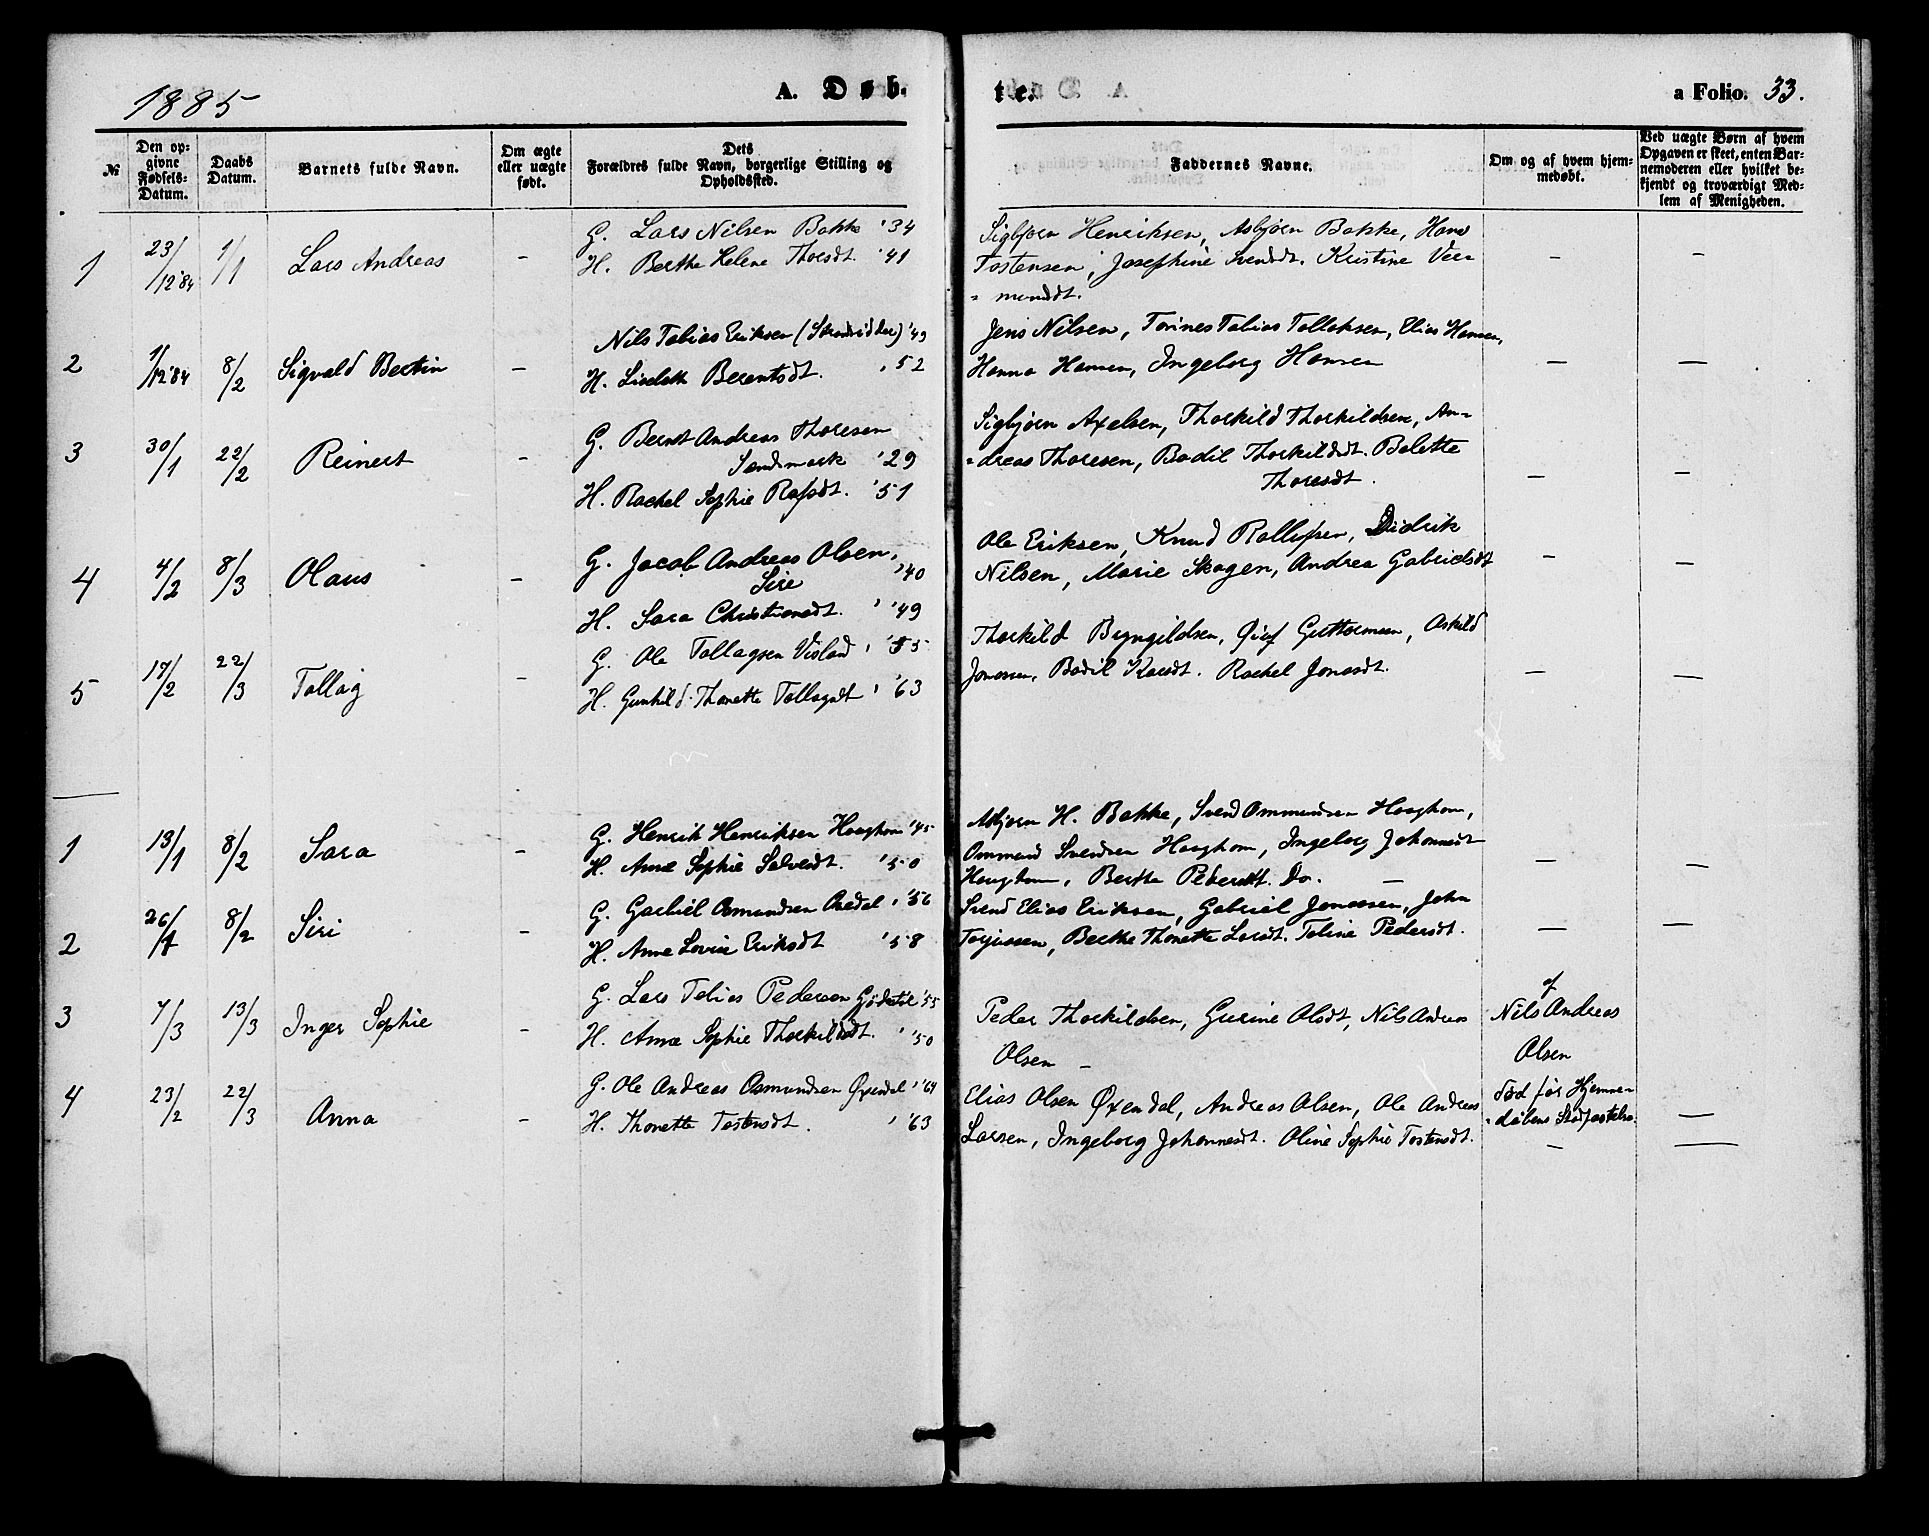 1885
A. Døb-
te.
a Folio. 33.
№
Den op-
givne
Fødsels-
Datum.
Daabs
Datum.
Barnets fulde Navn.
Om ægte
eller uægte
født.
Dets
Forældres fulde Navn, borgerlige Stilling og
Opholdssted.
Faddernes Navne.
Om og af hvem hjem-
medøbt.
Ved uægte Børn af hvem
Opgaven er skeet, enten Bar-
nemoderen eller hvilket be-
kjendt og troværdigt Med-
lem af Menigheden.
1 23/12 '84 1/1 Lars Andreas –
G. Lars Nilsen Bakke '34
H. Berthe Helene Thorsdt. '41
Sigbjørn Henriksen, Asbjørn Bakke, Hans
Tostensen, Josephine Svendsdt. Kristine Ver-
= mundsdt.
– –
2 1/12 '84 8/2 Sigvald Bertin –
Nils Tobias Eriksen (Strandridder) '49
H. Lisebeth Berentsdt. '52
Jens Nilsen, Torines Tobias Tollaksen, Elias Hansen,
Hanna Hansen, Ingeborg Hansen
– –
3 30/1 22/2 Reinert –
G. Bernt Andreas Thoresen
Sandsmark '29
H. Rachel Sophie Rafsdt. '51
Sigbjørn Axelsen, Thorkild Thorkildsen, An=
=dreas Thoresen, Bodil Thorkildsdt. Bolette
Thoresdt.
– –
4 4/2 8/3 Olaus –
G. Jacob Andreas Olsen,
Sire '40
H. Sara Christiansdt. '49
Ole Eriksen, Knud Rolufsen, Didrik
Nilsen, Marie Skogen, Andrea Gabrielsdt
– –
5 17/2 22/3 Tollag –
G. Ole Tollagsen Visland '55
H. Gunhild Thonette Tollagsdt '63
Thorkild Bryngildsen, Guttormsen, Askild
Jonassen, Bodil Karsdt. Rachel Jonasdt.
– –
1 13/1 8/2 Sara –
G. Henrik Henriksen Haaghom '45
H. Anne Sophie Salvesdt. '50
Asbjørn H. Bakke, Svend Ommundsen Haaghom,
Ommund Svendsen Haaghom, Ingeborg Johannesdt
Haaghom, Berthe Pedersdt. Do. –
– –
2 26/1 8/2 Siri –
G. Gabriel Osmundsen '56
H. Anne Lovise Eriksdt '58
Svend Elias Eriksen, Gabriel Jonassen, John
Torjussen, Berthe Thonette Larsdt. Toline Pedersdt.
– –
3 7/3 13/3 Inger Sophie –
G. Lars Tobias Pedersen '55
H. Anne Sophie Thorkildsdt. '50
Peder Thorkildsen, Gurine Olsdt, Nils Andreas
Olsen –
af
Nils Andreas
Olsen
død før Hjemme-
=døbens Stadfæstelse.
–
4 23/2 22/3 Anna –
G. Ole Andreas Osmundsen Øxendal '64
H. Thonette Tostensdt. '63
Elias Olsen Øxendal, Andreas Olsen, Ole Andreas
Larsen, Ingeborg Johannesdt. Oline Sophie Tostensdt.
– –